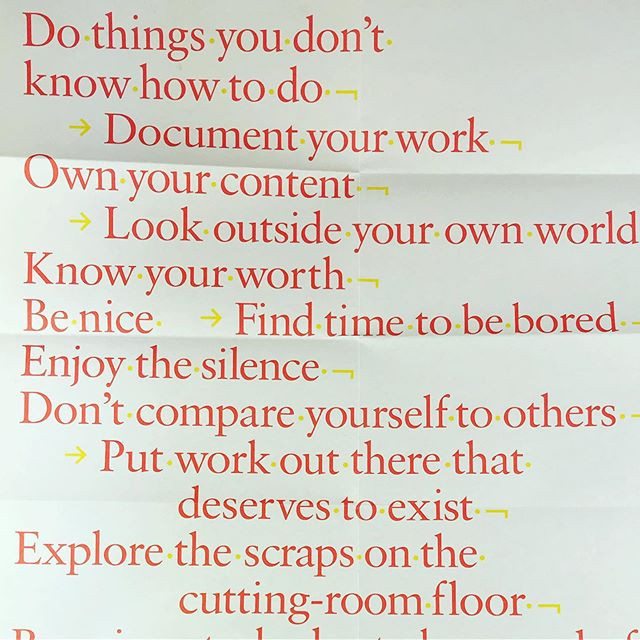 Do·things·you·don't·
know·how·to·do·¬
→ Document·your·work·¬
Own·your·content·¬
→ Look·outside·your·own·world
Know·your·worth·¬
Be·nice· → Find·time·to·be·bored·¬
Enjoy·the·silence·¬
Don't·compare·yourself·to·others·¬
→ Put·work·out·there·that·
deserves·to·exist·¬
Explore·the·scraps·on·the·
cutting-room·floor·¬